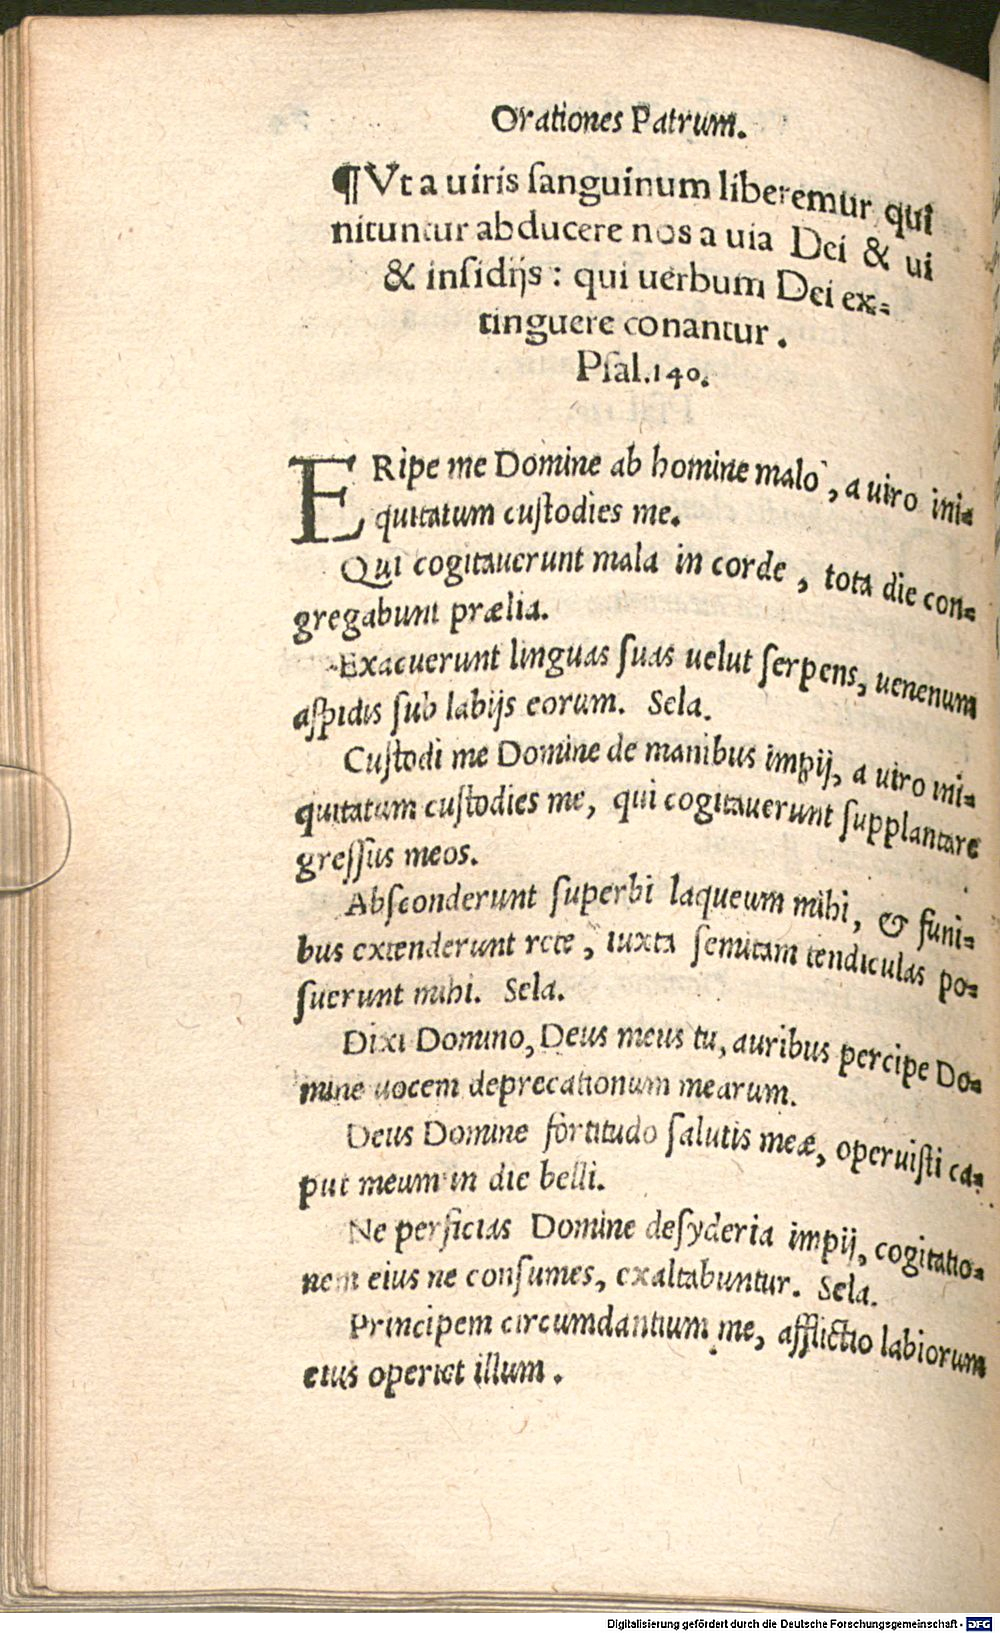 Orationes Patrum.
¶ Vt a uiris sanguinum liberemur, qui
nituntur abducere nos a uia Dei & ui
& insidijs: qui uerbum Dei ex=
tinguere conantur.
Psal. 140.
ERipe me Domine ab homine malo, a uiro ini=
quitatum custodies me.
Qui cogitauerunt mala in corde, tota die con=
gregabunt prælia.
Exacuerunt linguas suas uelut serpens, uenenum
aspidis sub labijs eorum. Sela.
Custodi me Domine de manibus impij, a uiro ini=
quitatum custodies me, qui cogitauerunt supplantare
gressus meos.
Absconderunt superbi laqueum mihi, & funi=
bus extenderunt rete, iuxta semitam tendiculas po=
suerunt mihi. Sela.
Dixi Domino, Deus meus tu, auribus percipe Do=
mine uocem deprecationum mearum.
Deus Domine fortitudo salutis meæ, operuisti ca=
put meum in die belli.
Ne perficias Domine desyderia impij, cogitatio=
nem eius ne consumes, exaltabuntur. Sela.
Principem circumdantium me, afflictio labiorum
eius operiet illum.
Digitalisierung gefördert durch die Deutsche Forschungsgemeinschaft - DFG